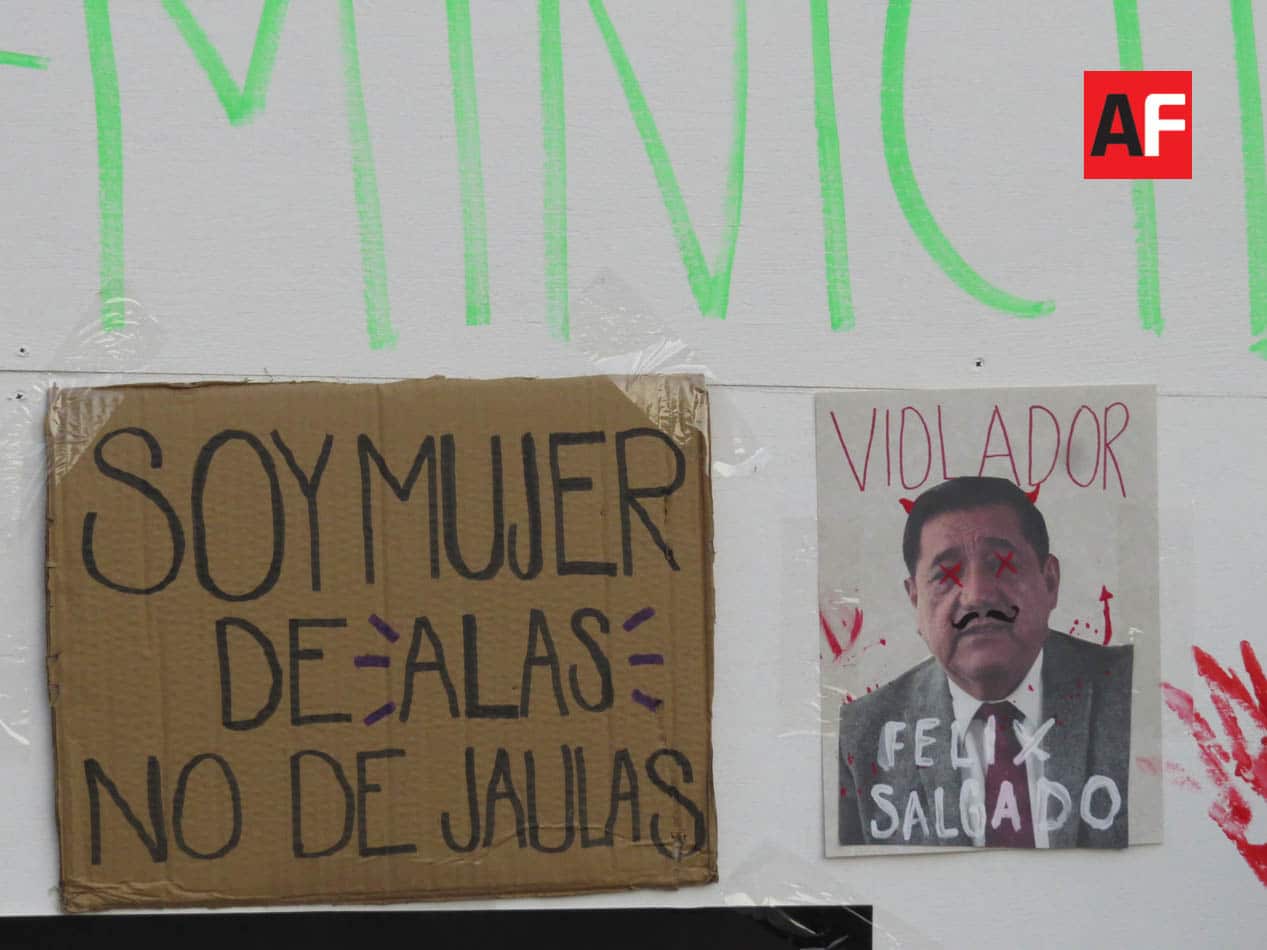 EMINICI
AF
SOY MUJER
DE ALAS
NO DE JAULAS
VIOLADOR
FELIX
SALGADO